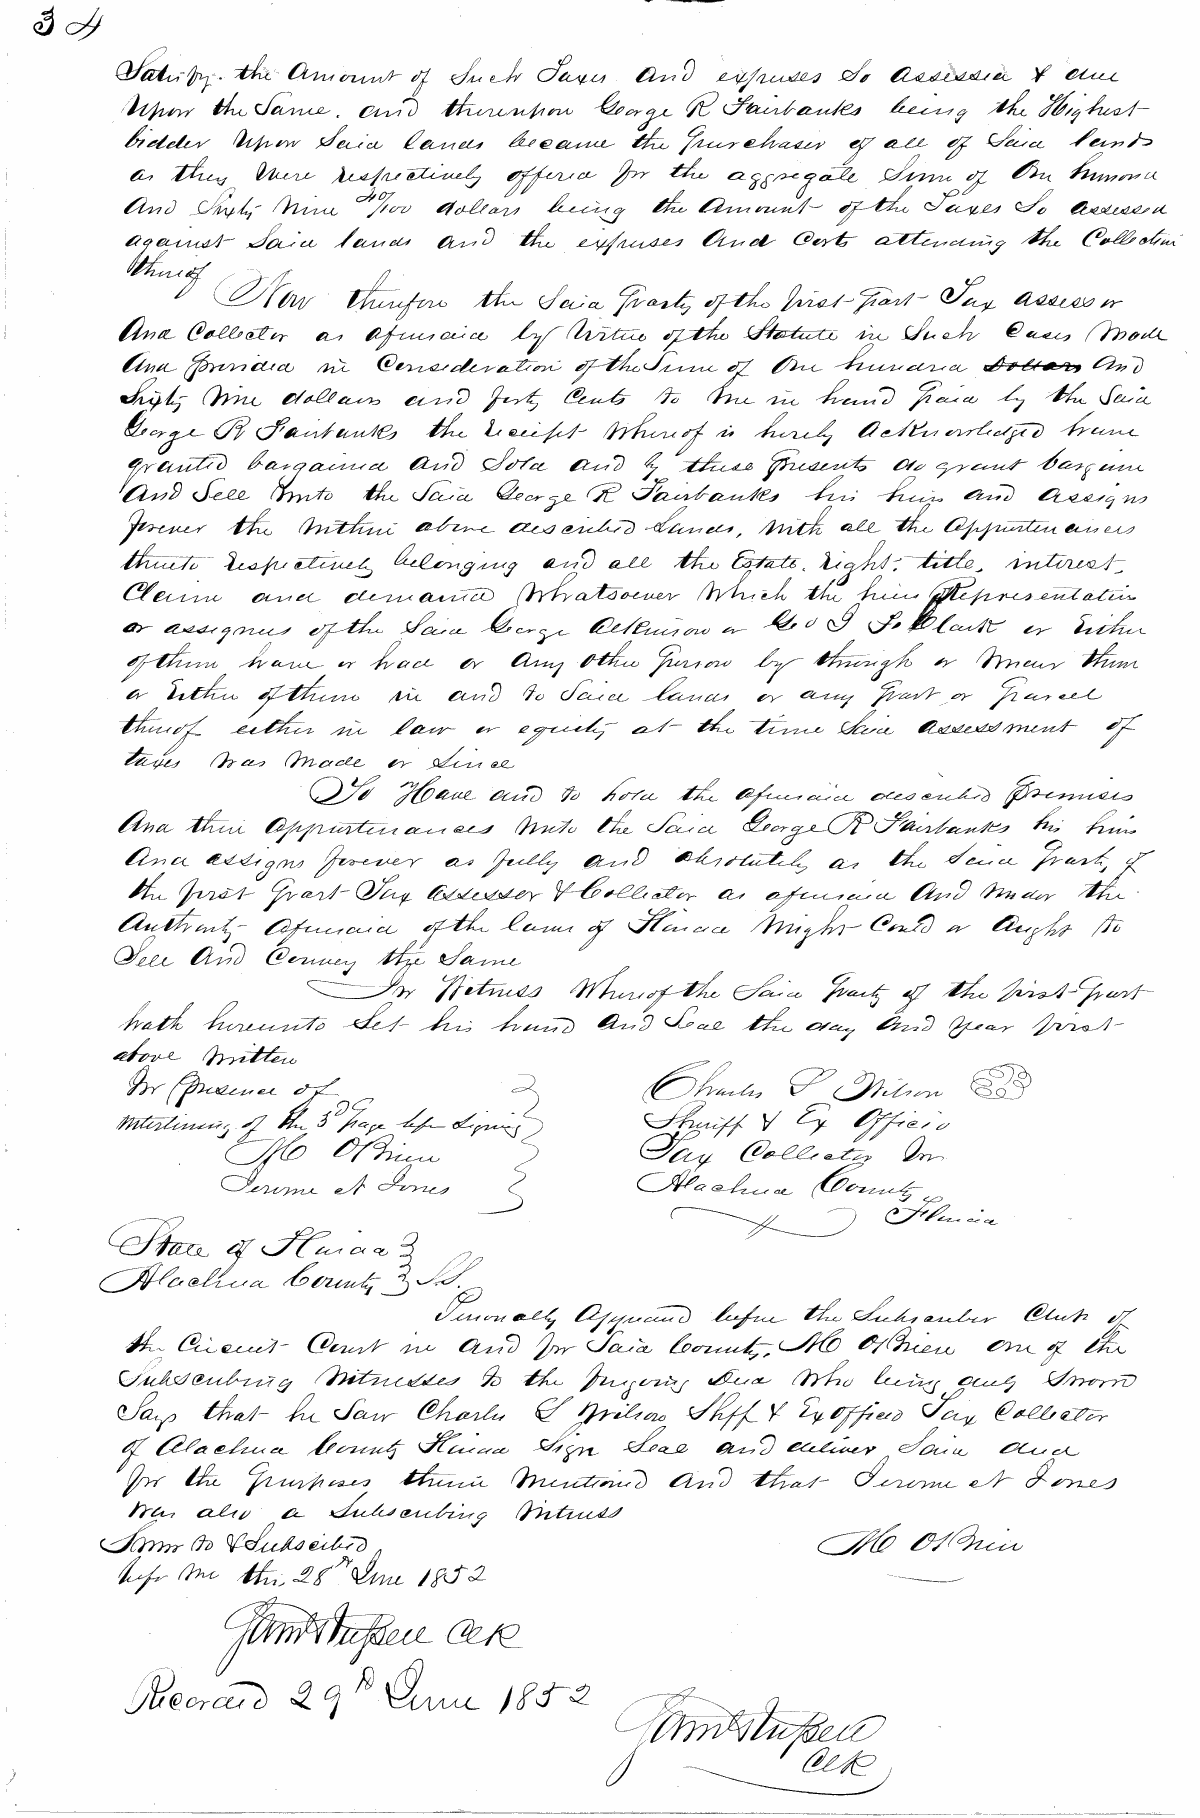 34
Satisfy. the Amount of Such Taxes And expenses So assessed & due
Upon the Same. and thereupon George R Fairbanks being the Highest
bidder Upon Said lands became the purchaser of all of Said lands
as they Were respectively offered for the aggregate Sum of One hundred
And Sixty Nine 40/100 dollars being the Amount of the Taxes So assessed
against Said lands and the expenses And Costs attending the Collection
thereof
Now therefore the Said Party of the first Part Tax assessor
And Collector as aforesaid by Virtue of the Statute in Such Cases Made
And provided in Consideration of the Sum of One hundred Dollars And
Sixty Nine dollars and forty Cents to Me in hand Paid by the Said
George R Fairbanks the receipt Whereof is hereby Acknowledged have
granted bargained And Sold and by these Presents do grant bargain
And Sell Unto the Said George R Fairbanks his heirs and assigns
forever the Within above described Lands, With all the Appurtenances
thereto respectively belonging and all the Estate. right. title. interest.
Claim and demand Whatsoever Which the heirs Representatives
or assignees of the Said George Atkinson or Geo I F. Clark or Either
of them have or had or Any Other Person by through or Under them
or Either of them in and to Said lands or any Part or Parcel
thereof either in law or equity at the time Said Assessment of
taxes Was Made or Since
To Have and to hold the aforesaid described Premises
And their Appurtenances Unto the Said George R Fairbanks his heirs
And assigns forever as fully and absolutely as the Said Party of
the first Part Tax Assessor & Collector as aforesaid And Under the
Authority Aforesaid of the laws of Florida Might Could or Aught to
Sell And Convey the Same
In Witness Whereof the Said Party of the first Part
hath hereunto Set his hand And Seal the day And Year first
above Written
In Presence of
interlining of the 3d Page before Signing
M OBrien
Jerome A Jones
Charles L Wilson
Sheriff & Ex Officio
Tax Collector In
Alachua County
Florida
State of Florida
Alachua County SS.
Personally Appeared before the Subscriber Clerk of
the Circuit Court in And for Said County, M OBrien One of the
Subscribing Witnesses to the forgoing Deed Who being duly Sworn
Says that he Saw Charles L Wilson Shff & Ex Officio Tax Collector
of Alachua County Florida Sign Seal and deliver Said deed
for the Purposes therein Mentioned And that Jerome A Jones
Was also a Subscribing Witness
Sworn to & Subscribed
before Me this 28th June 1852
M OBrien
Saml Russell Clk
Recorded 29th June 1852
Saml Russell
Clk